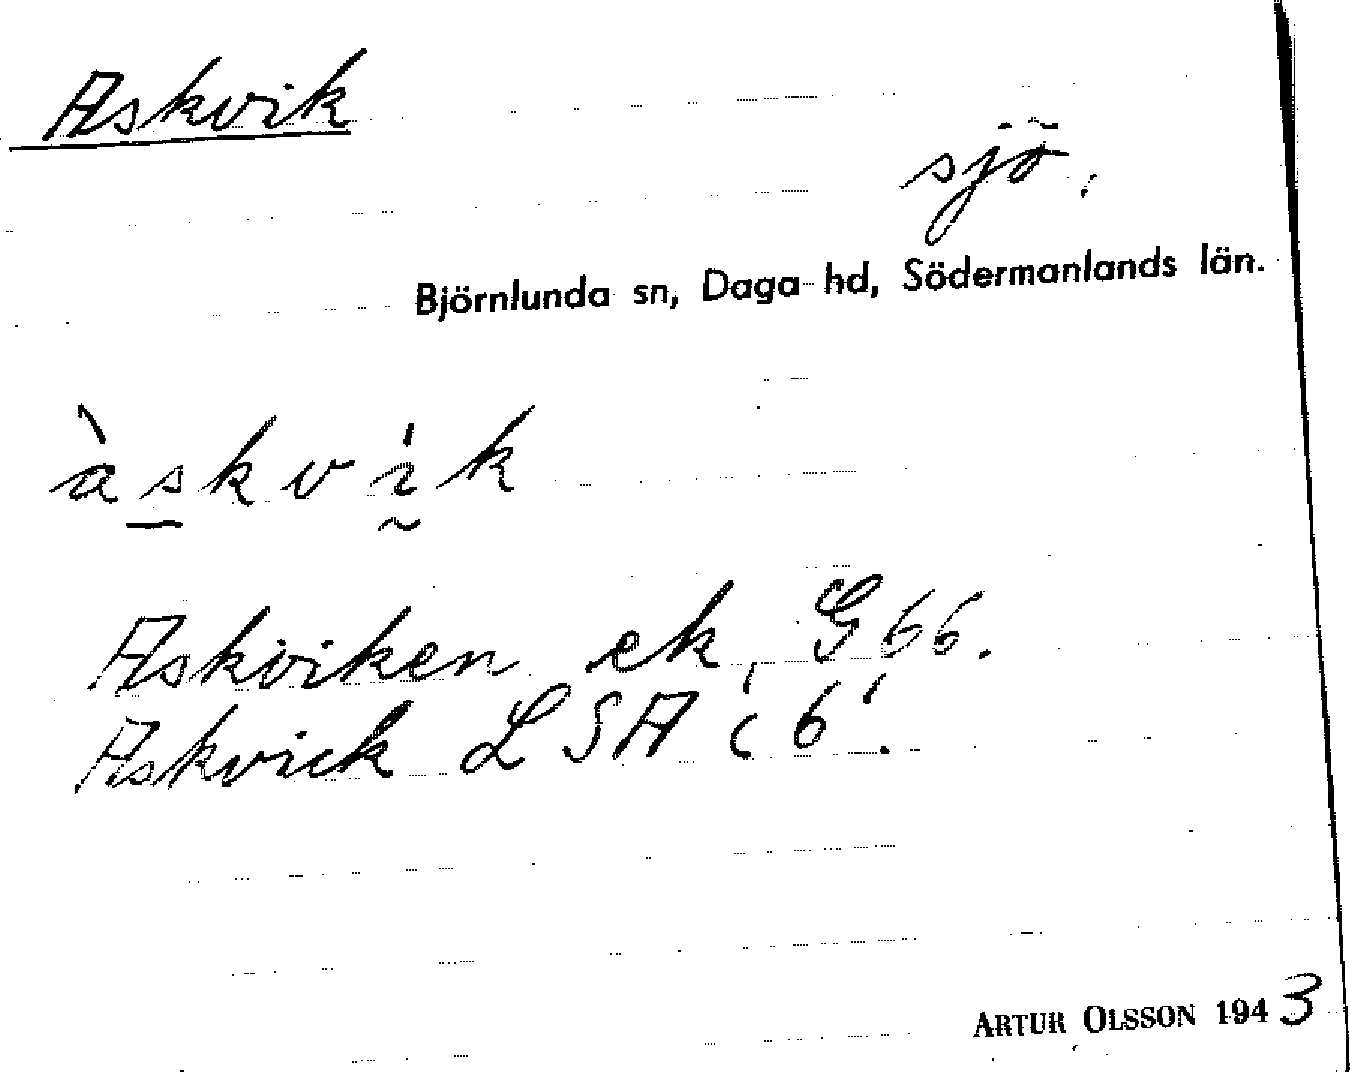 Askvik
sjö.
Björnlunda sn, Daga hd, Södermanlands län.
àskvik
Askviken ek. G 66.
Askvick LSA
ARTUR OLSSON 1943